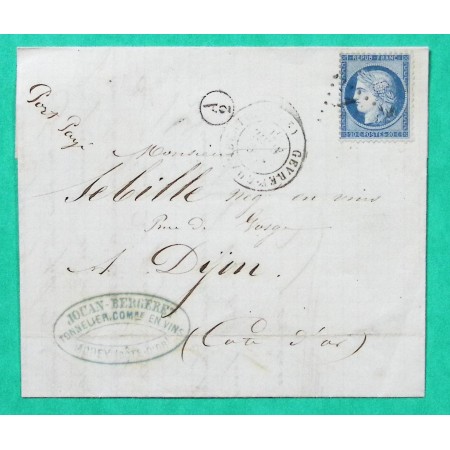 Port Payé
A
2
REPUB. FRANC.
POSTES
GEVREY
Monsieur
Sebille neg en vins
Rue de
A Dijon
(Cote d'or)
JOUAN-BERGERET
TONNELIER, COMRE EN VINS